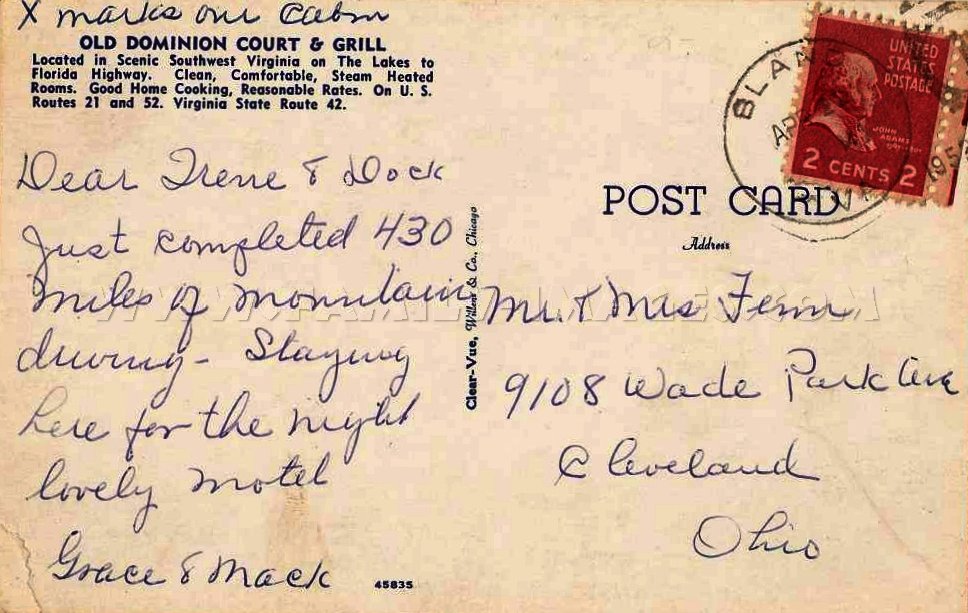 X marks our Cabin
OLD DOMINION COURT & GRILL
Located in Scenic Southwest Virginia on The Lakes to
Florida Highway. Clean, Comfortable, Steam Heated
Rooms. Good Home Cooking, Reasonable Rates. On U. S.
Routes 21 and 52. Virginia State Route 42.
Dear Irene & Dock
Just completed 430
miles of mountain
driving - Staying
here for the night
lovely motel
Grace & Mack
45835
Clear-Vue, Willens & Co., Chicago
UNITED
STATES
POSTAGE
JOHN
ADAMS
2 CENTS 2
BLAND
VA
POST CARD
Address
Mr. & Mrs Fenn
9108 Wade Park Ave
Cleveland
Ohio